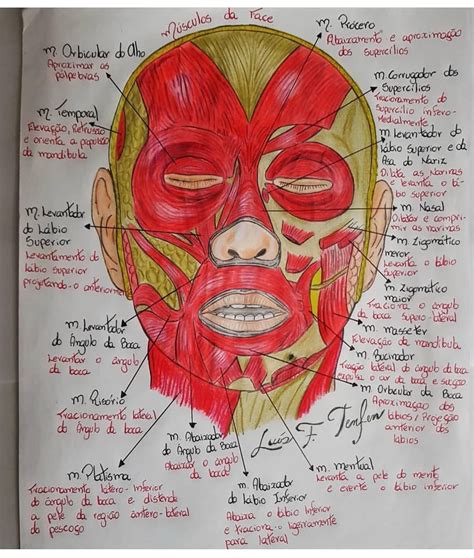 Músculos da Face
m. Orbicular do Olho
Aproximar as
pálpebras
m. Temporal
Elevação, Retrusão
e orienta a posição
da mandíbula
m. Levantador
do Lábio
Superior
Levantamento do
lábio superior
projetando-o anteriormente
m. Levantador
do Ângulo da Boca
Levantar o ângulo
da boca
m. Risório
Tracionamento lateral
do Ângulo da boca
m. Platisma
Tracionamento látero-inferior
do ângulo da boca e distende
a pele da região ântero-lateral
do pescoço
m. Abaixador
do Ângulo da Boca
Abaixar o ângulo
da boca
m. Abaixador
do Lábio Inferior
Abaixa o lábio Inferior
e traciona-o ligeiramente
para lateral
m. Prócero
Abaixamento e aproximação
dos supercílios
m. Corrugador dos
Supercílios
Tracionamento do
supercílio infero-
medialmente
m Levantador do
Lábio Superior e da
Asa do Nariz
Dilata as Narinas
e levanta o lá-
bio superior
m. Nasal
Dilatar e compri-
mir as narinas
m. Zigomático
menor
Levanta o lábio
superior
m. Zigomático
maior
Traciona o ângulo
da boca supero-lateral
m. Masseter
Elevação da mandíbula
m. Bucinador
Tração lateral do ângulo da boca
expulsa o ar da boca e sucção
m. Orbicular da Boca
Aproximação dos
lábios / Projeção
anterior dos
lábios
m. Mentual
Levanta a pele do mento
e everte o lábio inferior
Luis F. Tenfen